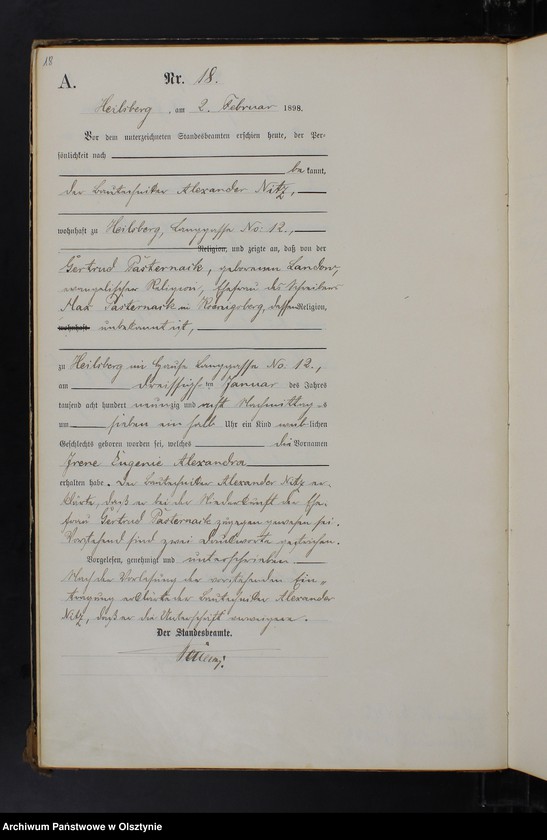 18
A.
Nr. 18.
Heilsberg, am 2. Februar 1898.
Vor dem unterzeichneten Standesbeamten erschien heute, der Per-
sönlichkeit nach
be kannt,
der Bautechniker Alexander Nitz,
wohnhaft zu Heilsberg, Langgasse No: 12.,
Religion, und zeigte an, daß von der
Gertrud Pasternack, geborenen Landow,
evangelischer Religion, Ehefrau des Schreibers
Max Pasternack in Koenigsberg, dessen Religion,
wohnhaft unbekannt ist,
zu Heilsberg im Hause Langgasse No: 12.,
am dreissigsten Januar des Jahres
tausend acht hundert neunzig und acht Nachmittags
um sieben ein halb Uhr ein Kind weib lichen
Geschlechts geboren worden sei, welches die Vornamen
Irene Eugenie Alexandra
erhalten habe. Der Bautechniker Alexander Nitz er-
klärte, daß er bei der Niederkunft der Ehe-
frau Gertrud Pasternack zugegen gewesen sei.
Vorstehend sind zwei Druckworte gestrichen.
Vorgelesen, genehmigt und unterschrieben
Nach der Vorlesung der vorstehenden Ein-
tragung erklärte der Bautechniker Alexander
Nitz, daß er die Unterschrift verweigere.
Der Standesbeamte.
Archiwum Państwowe w Olsztynie